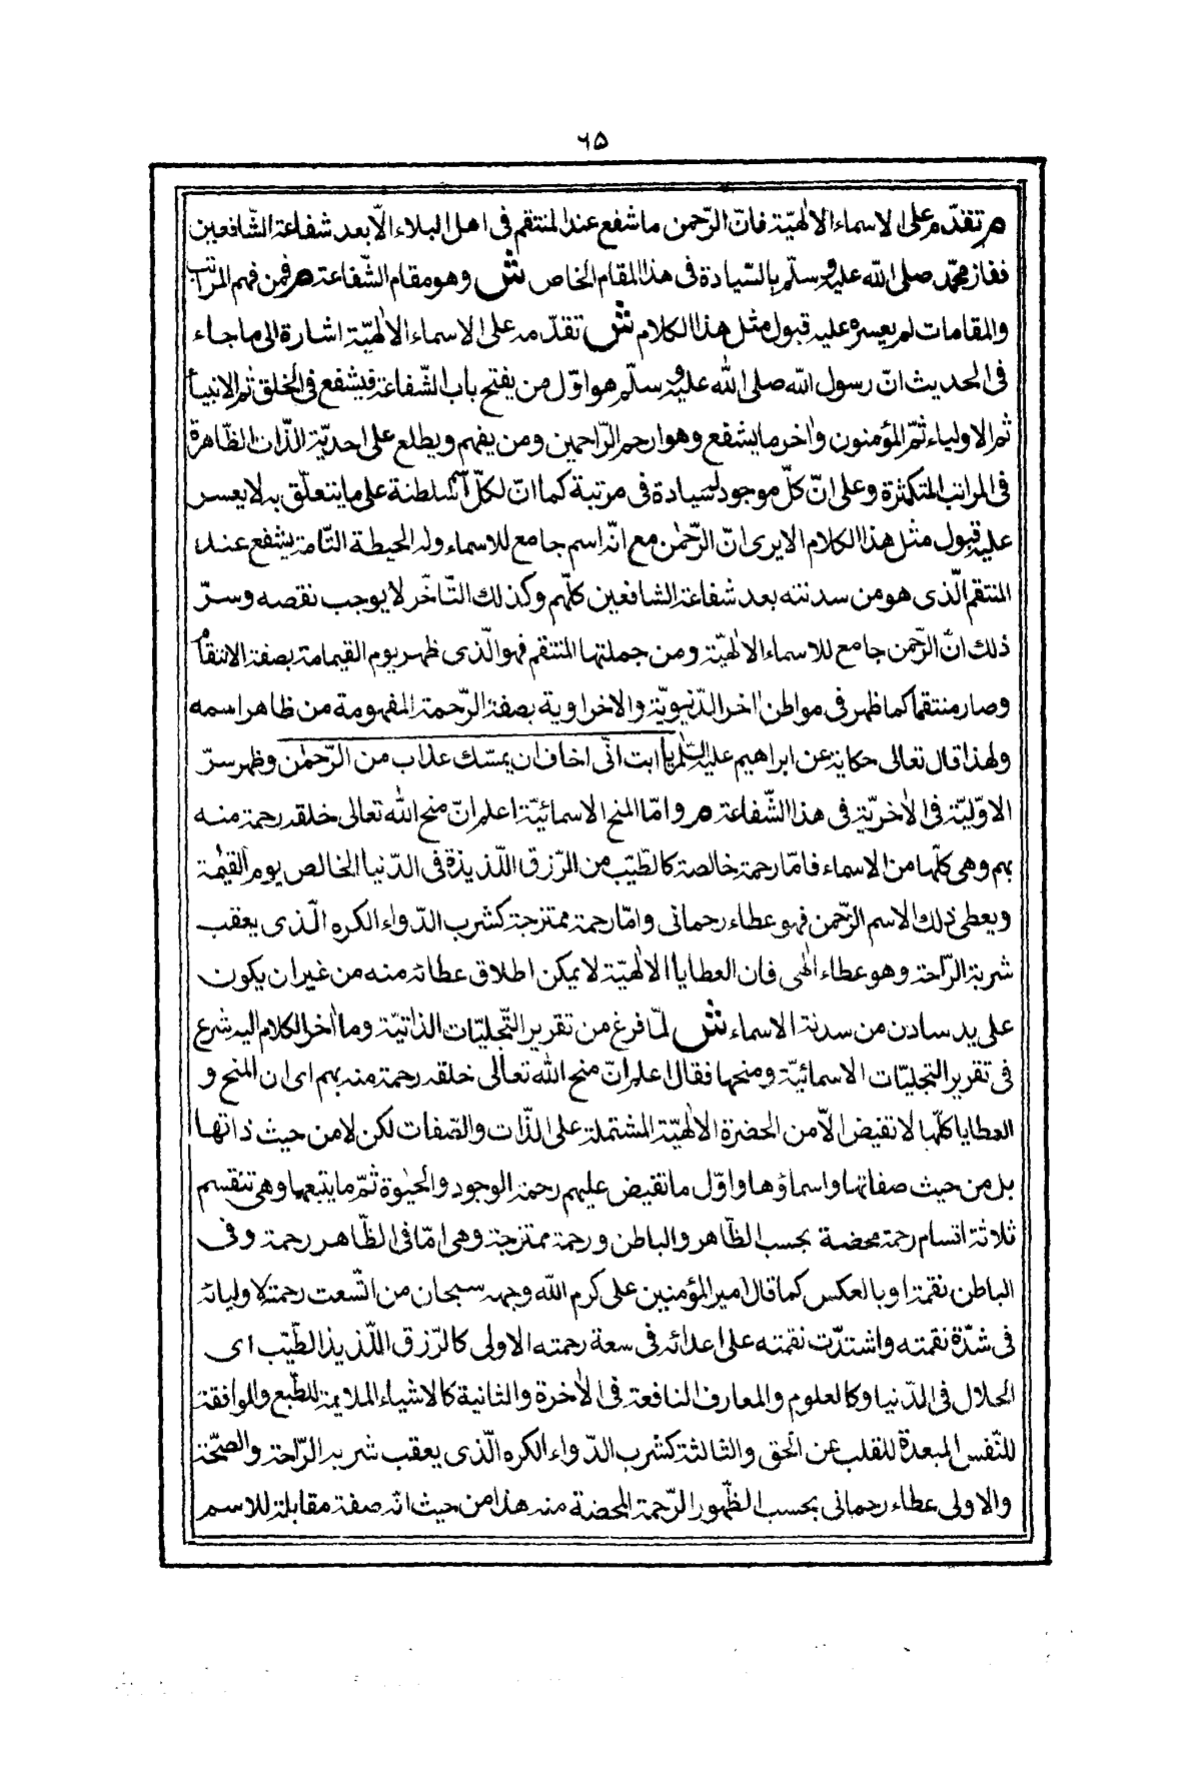 ٦٥
م تقدّم على الاسماء الالٰهيّة فانّ الرّحمن ما شفع عند المنتقم فى اهل البلاء الّا بعد شفاعة الشّافعين
ففاز محمّد صلى اللّه عليه وسلّم بالسّيادة فى هذا المقام الخاص ش وهو مقام الشّفاعة م فمن فهم المراتب
والمقامات لم يعسر عليه قبول مثل هذا الكلام ش تقدّمه على الاسماء الالٰهيّة اشارة الى ما جاء
فى الحديث انّ رسول اللّه صلى اللّه عليه وسلّم هو اوّل من يفتح باب الشّفاعة فيشفع فى الخلق ثم الانبياء
ثم الاولياء ثمّ المؤمنون واٰخر ما يشفع وهو ارحم الرّاحمين ومن يفهم ويطلع على احديّة الذّات الظّاهرة
فى المراتب المتكثرة وعلى انّ كلّ موجود له سيادة فى مرتبة كما انّ لكلّ اسم سلطنة على ما يتعلّق به لا يعسر
عليه قبول مثل هذا الكلام الا يرى انّ الرّحمٰن مع انّه اسم جامع للاسماء وله الحيطة التّامة يشفع عند
المنتقم الّذى هو من سدنته بعد شفاعة الشافعين كلّهم وكذلك التّاخّر لا يوجب نقصه وسرّ
ذلك انّ الرّحمن جامع للاسماء الالٰهيّة ومن جملتها المنتقم فهو الّذى ظهر يوم القيمامة بصفة الانتقام
وصار منتقما كما ظهر فى مواطن اٰخر الدّنيويّة والاخراوية بصفة الرّحمة المفهومة من ظاهر اسمه
ولهذا قال تعالى حكاية عن ابراهيم عليه السّلم يا ابت انّى اخاف ان يمسّك عذاب من الرّحمٰن وظهر سرّ
الاوّليّة فى الاٰخريّة فى هذا الشّفاعة م وامّا المنح الاسمائيّة اعلم انّ منح اللّه تعالى خلقه رحمة منه
بهم وهى كلّها من الاسماء فامّا رحمة خالصة كالطّيّب من الرّزق اللّذيذة فى الدّنيا الخالص يوم القيٰمة
ويعطى ذلك الاسم الرّحمن فهو عطاء رحمانى وامّا رحمة ممتزجة كشرب الدّواء الكره الّذى يعقب
شربة الرّاحة وهو عطاء الٰهى فان العطايا الالٰهيّة لا يمكن اطلاق عطائه منه من غير ان يكون
على يد سادن من سدنة الاسماء ش لمّا فرغ من تقرير التّجليّات الذاتيّة وما اٰخر الكلام اليه شرع
فى تقرير التجليّات الاسمائيّة ومنحها فقال اعلم انّ منح اللّه تعالى خلقه رحمة منه بهم اى ان المنح و
العطايا كلّها لا تفيض الّا من الحضرة الالٰهيّة المشتملة على الذّات والصّفات لكن لا من حيث ذاتها
بل من حيث صفاتها واسماؤها واوّل ما تفيض عليهم رحمة الوجود والحيٰوة ثمّ ما يتبعها وهى تنقسم
ثلاثة اقسام رحمة محضة بحسب الظّاهر والباطن ورحمة ممتزجة وهى امّا فى الظّاهر رحمة وفى
الباطن نقمة او بالعكس كما قال امير المؤمنين على كرم اللّه وجهه سبحان من اتّسعت رحمته لاوليائه
فى شدّة نقمته واشتدّت نقمته على اعدائه فى سعة رحمته الاولى كالرّزق اللّذيذ الطّيّب اى
الحلال فى الدّنيا وكالعلوم والمعارف النافعة فى الاٰخرة والثانية كالاشياء الملايمة للطّبع والموافقة
للنّفس المبعدة للقلب عن الحق والثالثة كشرب الدّواء الكره الّذى يعقب شربه الرّاحة والصحّة
والاولى عطاء رحمانى بحسب الظّهور الرّحمة المحضة منه هذا من حيث انه صفة مقابلة للاسم